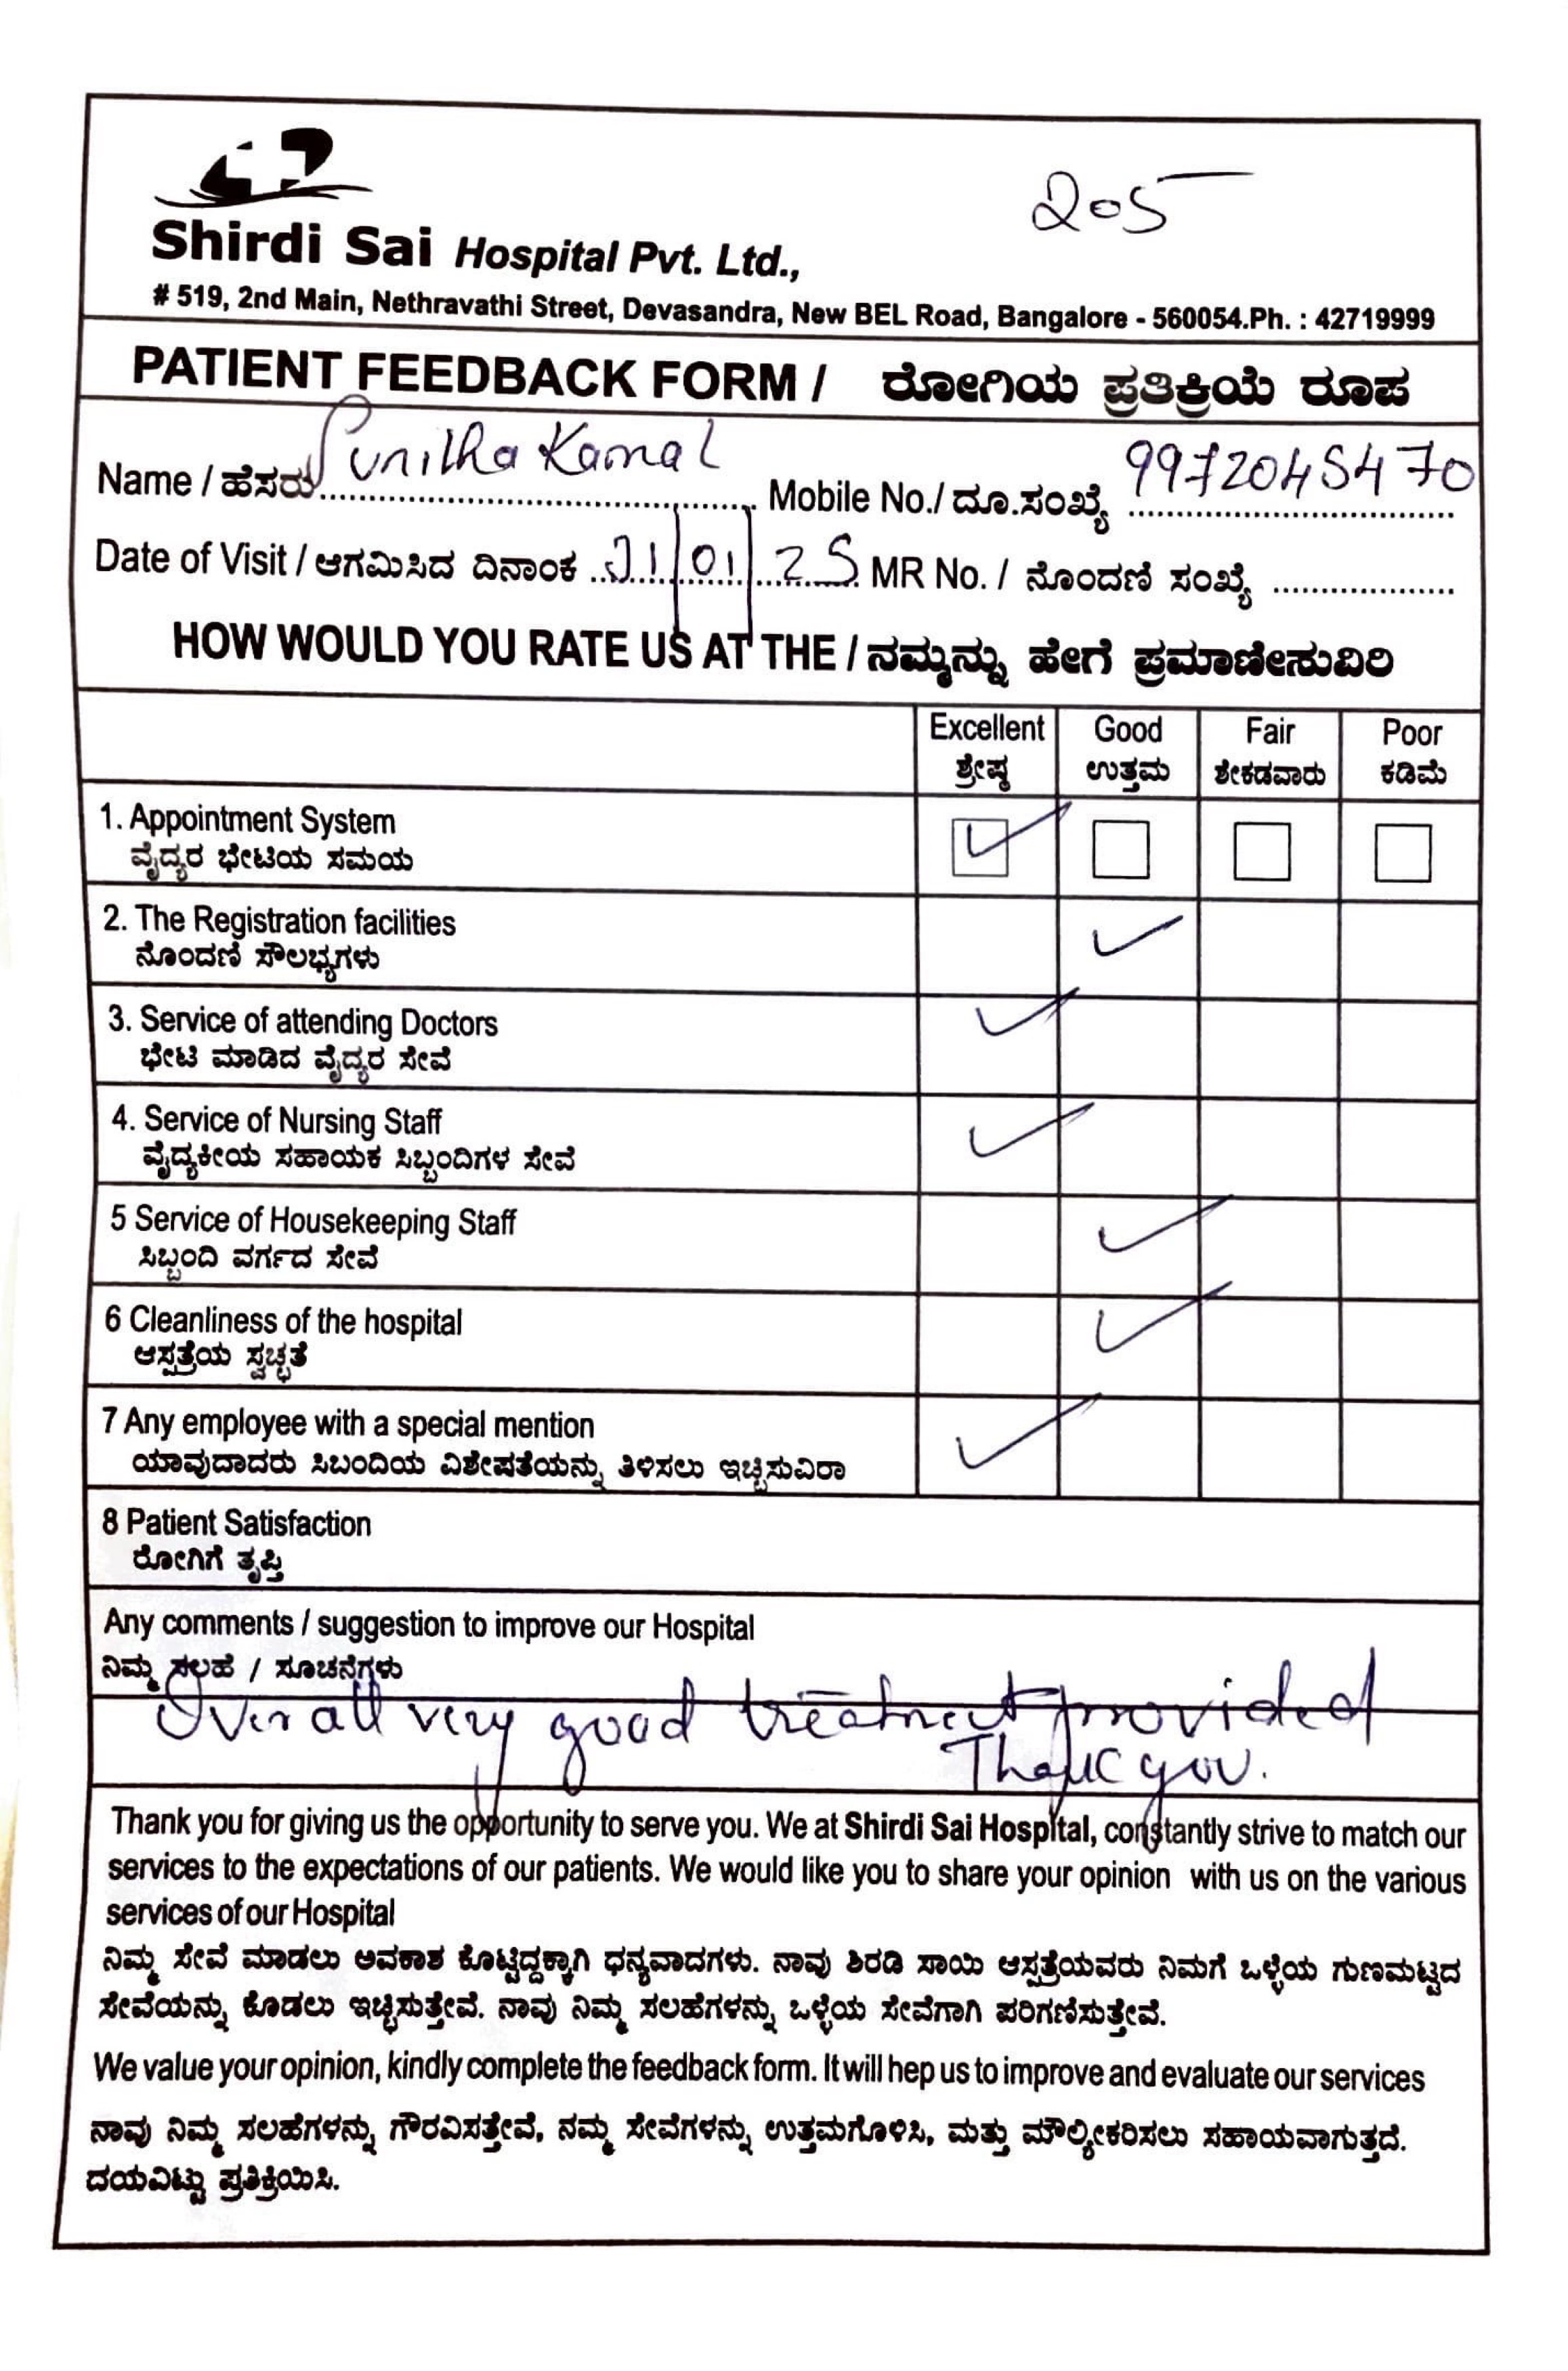 205
Shirdi Sai Hospital Pvt. Ltd.,
# 519, 2nd Main, Nethravathi Street, Devasandra, New BEL Road, Bangalore - 560054.Ph. : 42719999
PATIENT FEEDBACK FORM / ರೋಗಿಯ ಪ್ರತಿಕ್ರಿಯೆ ರೂಪ
Name / ಹೆಸರು Sunitha Kamal Mobile No./ ದೂ.ಸಂಖ್ಯೆ 9972045470
Date of Visit / ಆಗಮಿಸಿದ ದಿನಾಂಕ 01/25 MR No. / ನೊಂದಣಿ ಸಂಖ್ಯೆ
HOW WOULD YOU RATE US AT THE / ನಮ್ಮನ್ನು ಹೇಗೆ ಪ್ರಮಾಣೀಸುವಿರಿ
Excellent Good Fair Poor
ಶ್ರೇಷ್ಠ ಉತ್ತಮ ಶೇಕಡವಾರು ಕಡಿಮೆ
1. Appointment System
ವೈದ್ಯರ ಭೇಟಿಯ ಸಮಯ
2. The Registration facilities
ನೊಂದಣಿ ಸೌಲಭ್ಯಗಳು
3. Service of attending Doctors
ಭೇಟಿ ಮಾಡಿದ ವೈದ್ಯರ ಸೇವೆ
4. Service of Nursing Staff
ವೈದ್ಯಕೀಯ ಸಹಾಯಕ ಸಿಬ್ಬಂದಿಗಳ ಸೇವೆ
5 Service of Housekeeping Staff
ಸಿಬ್ಬಂದಿ ವರ್ಗದ ಸೇವೆ
6 Cleanliness of the hospital
ಆಸ್ಪತ್ರೆಯ ಸ್ವಚ್ಛತೆ
7 Any employee with a special mention
ಯಾವುದಾದರು ಸಿಬಂದಿಯ ವಿಶೇಷತೆಯನ್ನು ತಿಳಿಸಲು ಇಚ್ಛಿಸುವಿರಾ
8 Patient Satisfaction
ರೋಗಿಗೆ ತೃಪ್ತಿ
Any comments / suggestion to improve our Hospital
ನಿಮ್ಮ ಸಲಹೆ / ಸೂಚನೆಗಳು
Over all very good treatment provided
Thank you.
Thank you for giving us the opportunity to serve you. We at Shirdi Sai Hospital, constantly strive to match our
services to the expectations of our patients. We would like you to share your opinion with us on the various
services of our Hospital
ನಿಮ್ಮ ಸೇವೆ ಮಾಡಲು ಅವಕಾಶ ಕೊಟ್ಟಿದ್ದಕ್ಕಾಗಿ ಧನ್ಯವಾದಗಳು. ನಾವು ಶಿರಡಿ ಸಾಯಿ ಆಸ್ಪತ್ರೆಯವರು ನಿಮಗೆ ಒಳ್ಳೆಯ ಗುಣಮಟ್ಟದ
ಸೇವೆಯನ್ನು ಕೊಡಲು ಇಚ್ಛಿಸುತ್ತೇವೆ. ನಾವು ನಿಮ್ಮ ಸಲಹೆಗಳನ್ನು ಒಳ್ಳೆಯ ಸೇವೆಗಾಗಿ ಪರಿಗಣಿಸುತ್ತೇವೆ.
We value your opinion, kindly complete the feedback form. It will hep us to improve and evaluate our services
ನಾವು ನಿಮ್ಮ ಸಲಹೆಗಳನ್ನು ಗೌರವಿಸತ್ತೇವೆ, ನಮ್ಮ ಸೇವೆಗಳನ್ನು ಉತ್ತಮಗೊಳಿಸಿ, ಮತ್ತು ಮೌಲ್ಯೀಕರಿಸಲು ಸಹಾಯವಾಗುತ್ತದೆ.
ದಯವಿಟ್ಟು ಪ್ರತಿಕ್ರಿಯಿಸಿ.